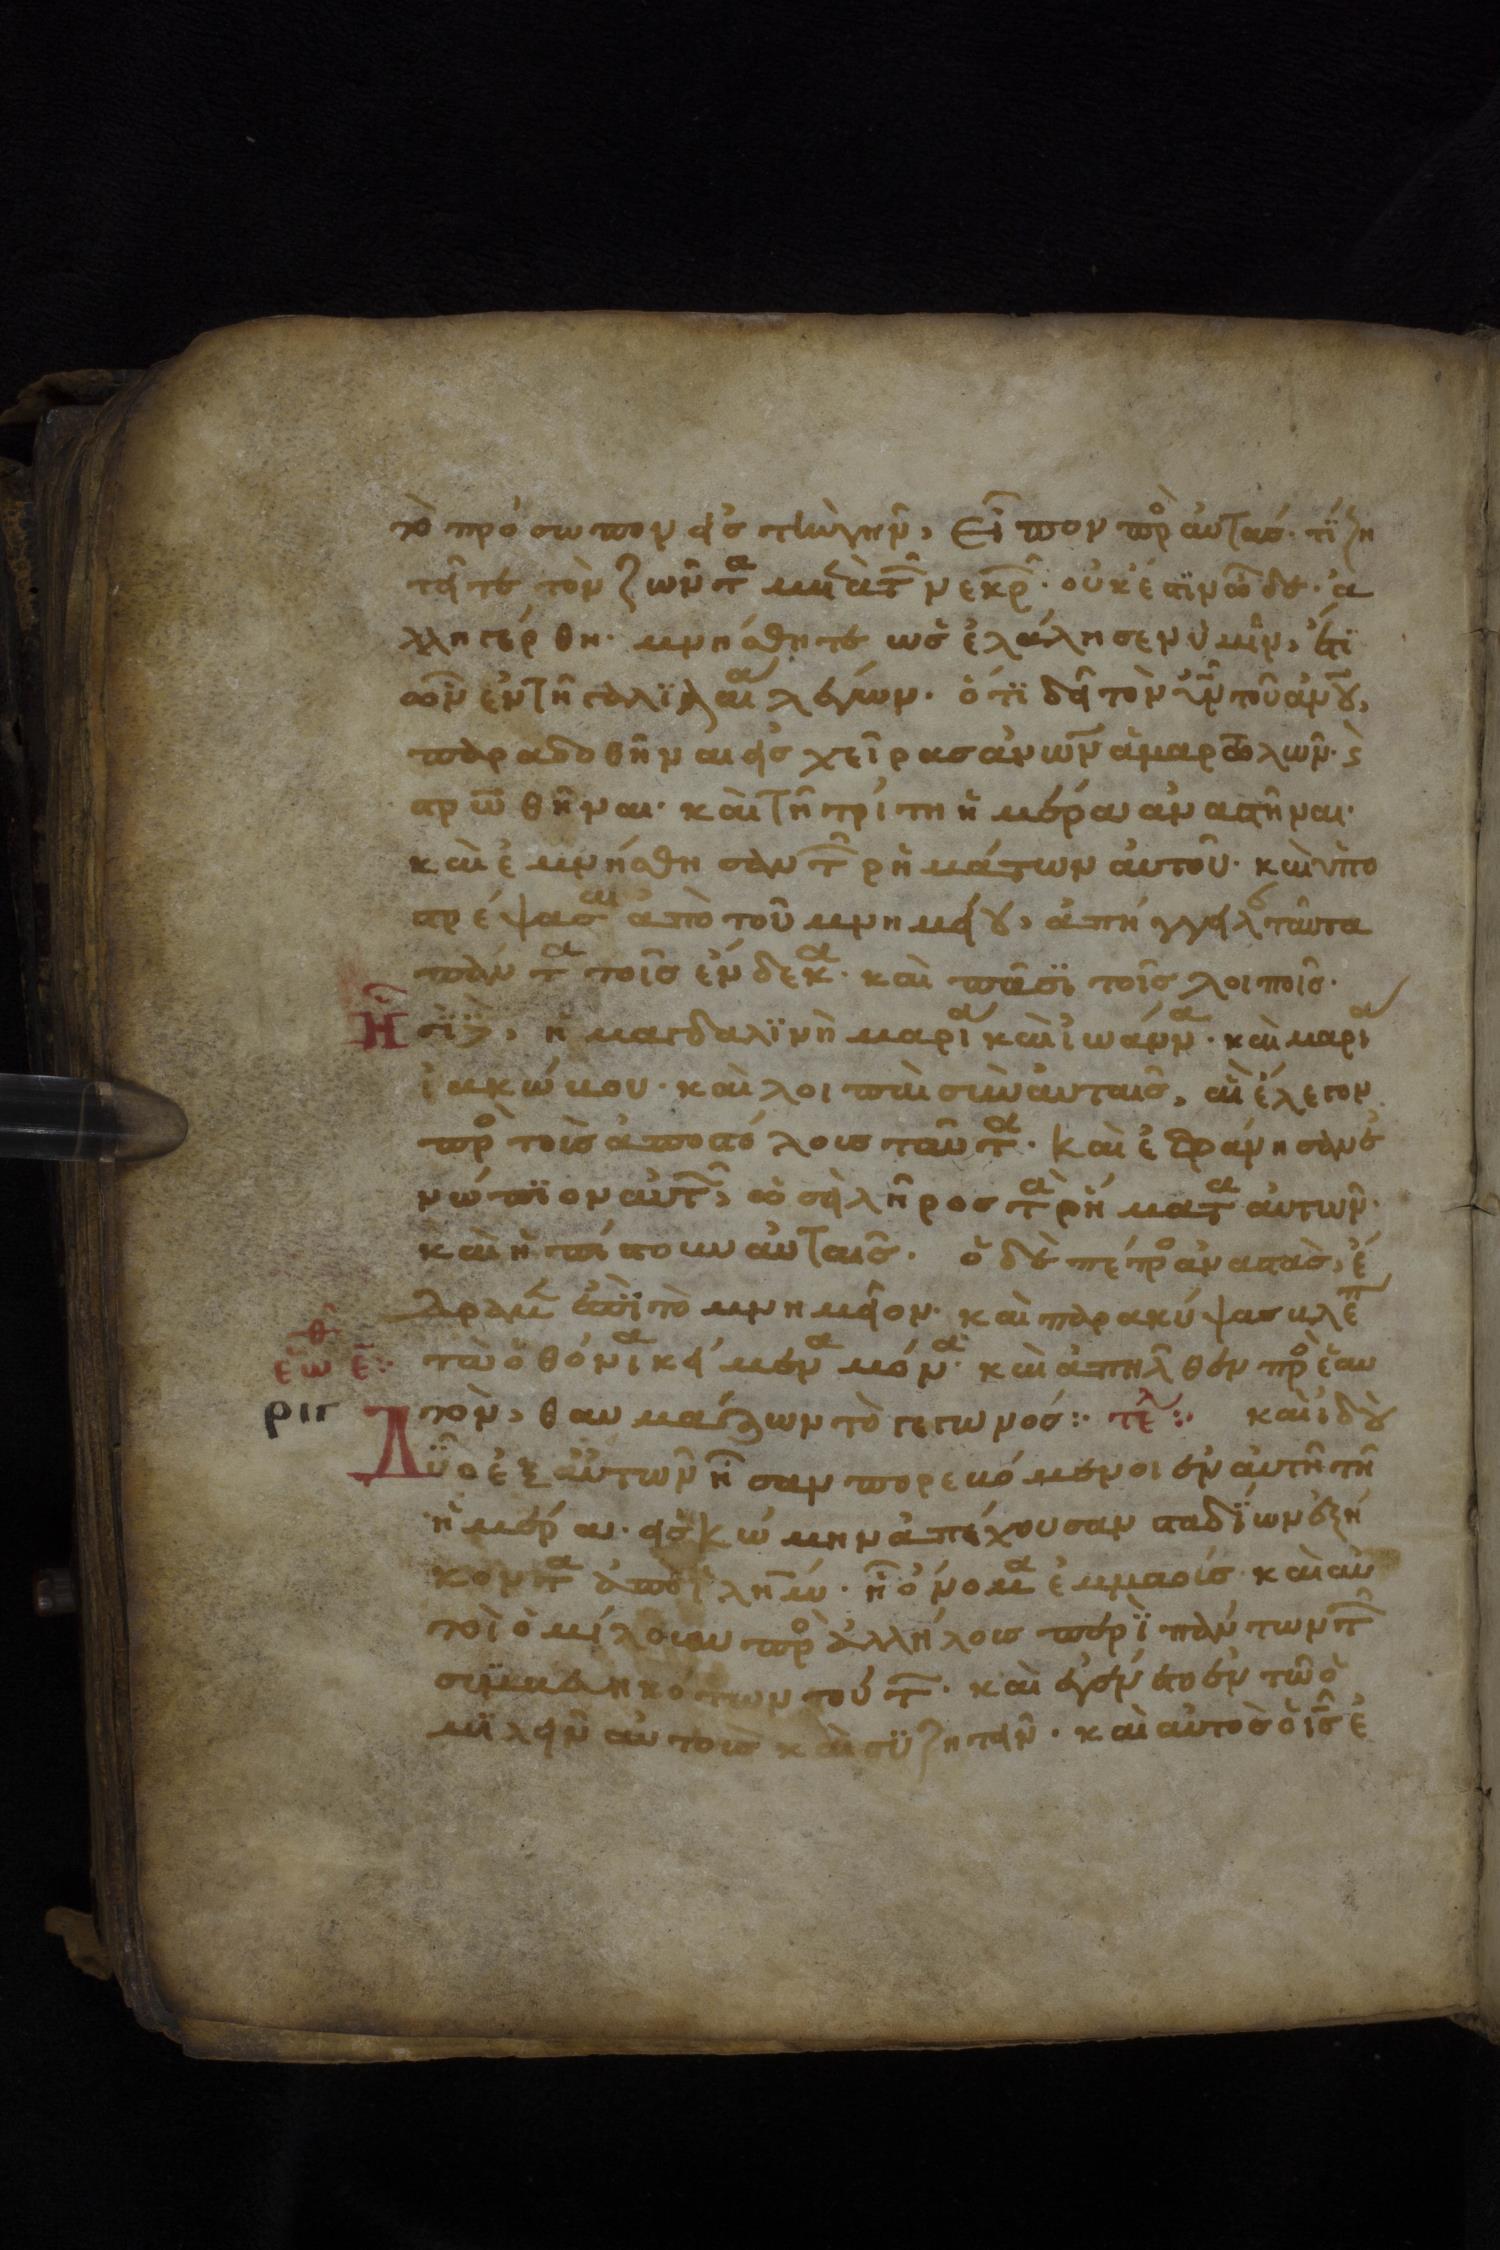 τὸ πρόσωπον εἰς τὴν γῆν, Εἶπον πρ αὐτάς· τί ζη
τεῖτε τὸν ζῶντ μετὰ τ νεκρ· οὐκ έστιν ὧδε· ἀ
λληγέρθη· μνήσθητε ὡς ἐλάλησεν ὑμῖν, έτι
ὢν ἐν τῆ γαλιλαία λέγων· ότι δεῖ τὸν υν τοῦ ανου,
παραδοθῆναι εἰς χεῖρας ανων ἁμαρτωλῶν· ς
στρωθῆναι· καὶ τῆ τρίτη ἡμέρα αναστῆναι·
καὶ ἐμνήσθησαν τ ρημάτων αὐτοῦ· καὶ ὑπο
στρέψασαι ἀπὸ τοῦ μνημείου, ἀπήγγειλ ταῦτα
πάντα τοῖς ένδεκα· καὶ πᾶσι τοῖς λοιποῖς·
Ησ, ἡ μαγδαλινὴ μαρία καὶ ἰωάννα· καὶ μαρία
ἰακώβου· καὶ λοιπαὶ σὺν αὐταῖς, αἳ έλεγον
πρ τοὺς ἀποστόλους ταῦτα· καὶ ἐφάνησαν ἐ
νώπιον αὐτ, ὡσεὶ λῆρος τὰ ρήματα αὐτῶν·
καὶ ἠπίστουν αὐταῖς· ὁ δὲ πέτρο ἀναστὰς, έ
δραμ ἐπὶ τὸ μνημεῖον· καὶ παρακύψας βλέπ
τὰ ὀθόνια κείμενα μόνα· καὶ ἀπῆλθεν πρ ἑαυ
τὸν, θαυμάζων τὸ γεγονός: τελ: καὶ ἰδοὺ
θ
εω ε:
ριγ
Δύο ἐξ αὐτῶν ἦσαν πορευόμενοι ἐν αὐτῆ τῆ
ἡμέρα· εἰς κώμην ἀπέχουσαν σταδίων ἑξή
κοντα ἀπὸ ιλημ· ἧ όνομα ἐμμαούς· καὶ αὐ
τοὶ ὁμίλουν πρ ἀλλήλους περὶ πάντων τ
συμβεβηκότων τούτ· καὶ ἐγένετο ἐν τῶ ὁ
μιλεῖν αὐτοὺς καὶ συζητεῖν· καὶ αὐτὸς ὁ ις ἐ